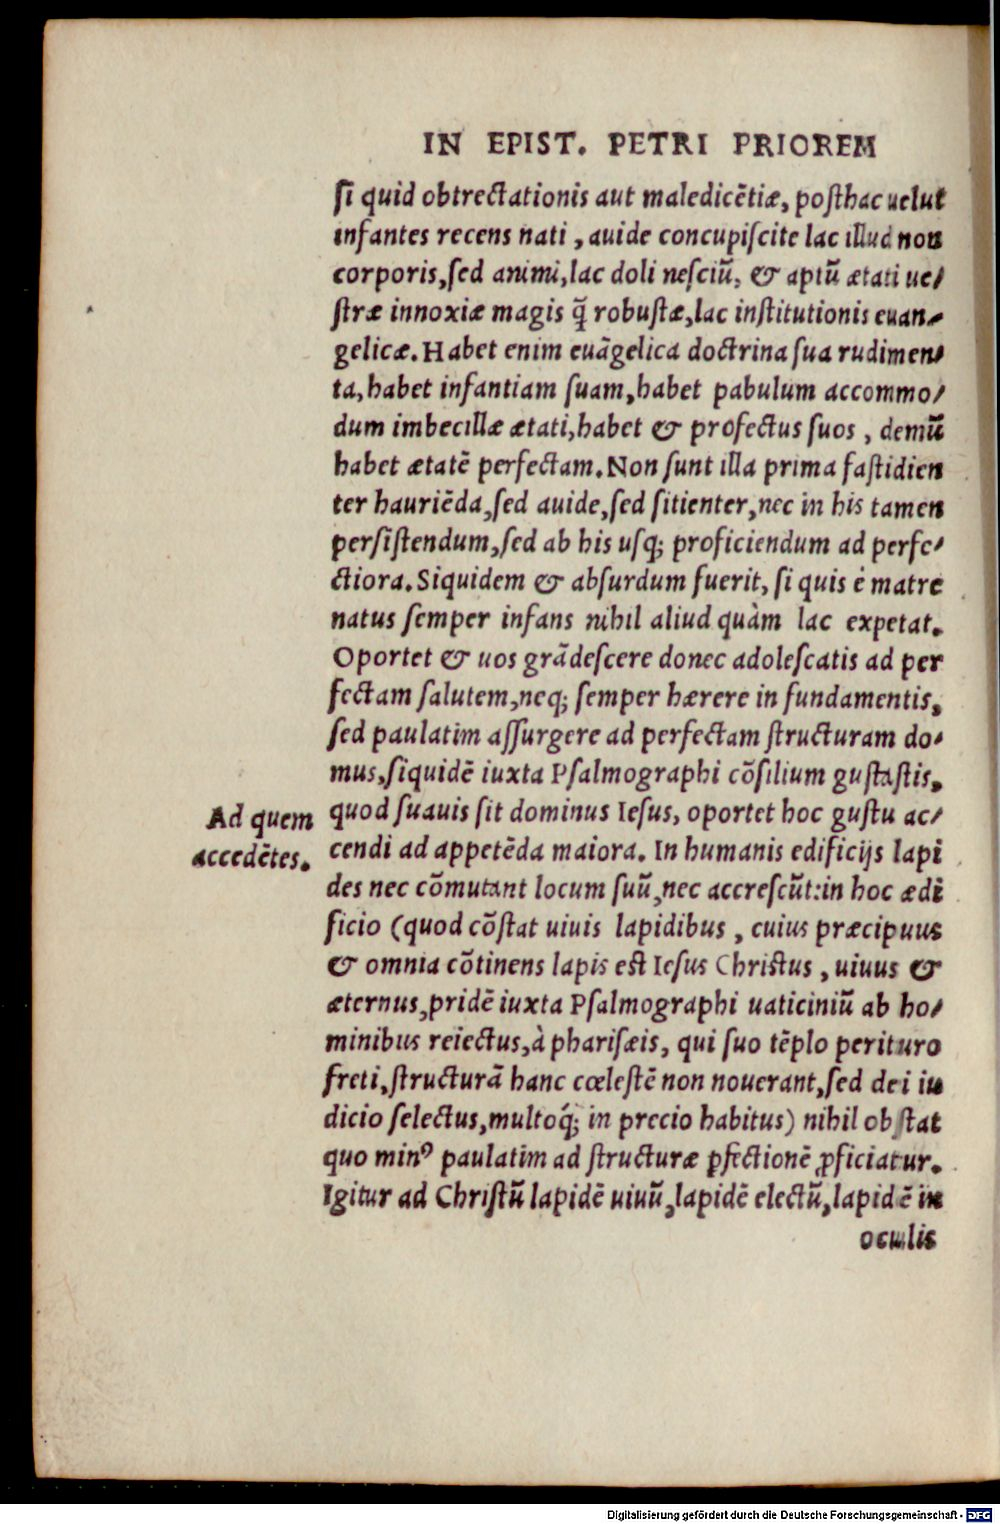 IN EPIST. PETRI PRIOREM
ſi quid obtrectationis aut maledicẽtiæ, poſthac uelut
infantes recens nati, auide concupiſcite lac illud non
corporis, ſed animi, lac doli neſciũ, & aptũ ætati ue/
ſtræ innoxiæ magis q̃ robuſtæ, lac inſtitutionis euan-
gelicæ. Habet enim euãgelica doctrina ſua rudimen/
ta, habet infantiam ſuam, habet pabulum accommo/
dum imbecillæ ætati, habet & profectus ſuos, demũ
habet ætatẽ perfectam. Non ſunt illa prima faſtidien
ter hauriẽda, ſed auide, ſed ſitienter, nec in his tamen
perſiſtendum, ſed ab his uſq; proficiendum ad perfe/
ctiora. Siquidem & abſurdum fuerit, ſi quis è matre
natus ſemper infans nihil aliud quàm lac expetat.
Oportet & uos grãdeſcere donec adoleſcatis ad per
fectam ſalutem, neq; ſemper hærere in fundamentis,
ſed paulatim aſſurgere ad perfectam ſtructuram do/
mus, ſiquidẽ iuxta Pſalmographi cõſilium guſtaſtis,
Ad quem
accedẽtes.
quod ſuauis ſit dominus Ieſus, oportet hoc guſtu ac/
cendi ad appetẽda maiora. In humanis edificijs lapi
des nec cõmutant locum ſuũ, nec accreſcũt: in hoc ædi
ficio (quod cõſtat uiuis lapidibus, cuius præcipuus
& omnia cõtinens lapis eſt Ieſus Chriſtus, uiuus &
æternus, pridẽ iuxta Pſalmographi uaticiniũ ab ho/
minibus reiectus, à phariſæis, qui ſuo tẽplo perituro
freti, ſtructurã hanc cœleſtẽ non nouerant, ſed dei iu
dicio ſelectus, multoq́; in precio habitus) nihil obſtat
quo minꝰ paulatim ad ſtructuræ ꝑfectionẽ ꝓficiatur.
Igitur ad Chriſtũ lapidẽ uiuũ, lapidẽ electũ, lapidẽ in
oculis
Digitalisierung gefördert durch die Deutsche Forschungsgemeinschaft - DFG